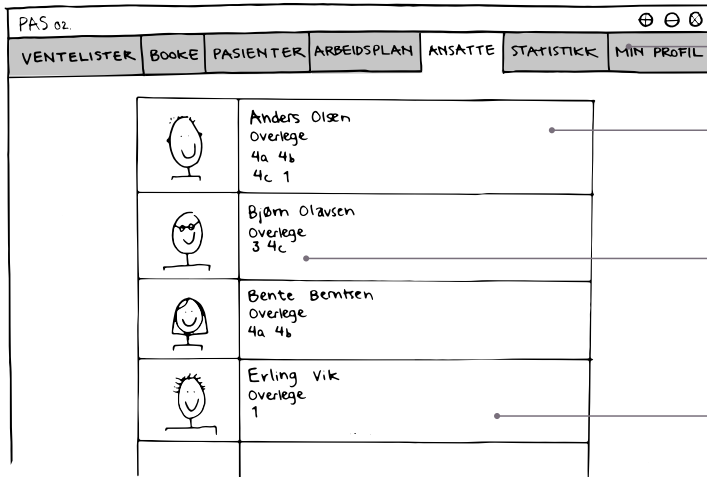 PAS 02.
VENTELISTER BOOKE PASIENTER ARBEIDSPLAN ANSATTE STATISTIKK MIN PROFIL
Anders Olsen
Overlege
4a 4b
4c 1
Bjørn Olavsen
Overlege
3 4c
Bente Berntsen
Overlege
4a 4b
Erling Vik
Overlege
1